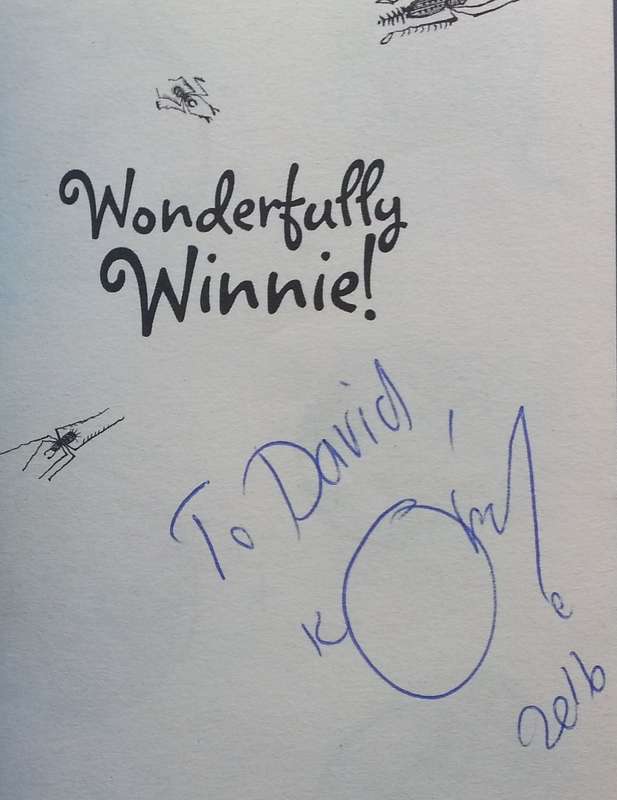 Wonderfully
Winnie!
To David,
2016